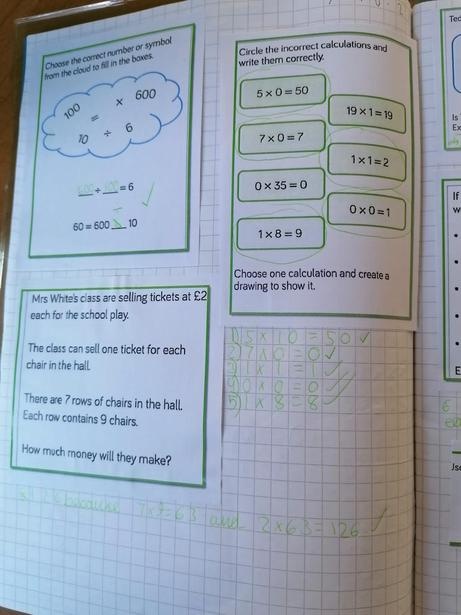 Choose the correct number or symbol
from the cloud to fill in the boxes.
100 = × 600
10 ÷ 6
600 ÷ 100 = 6
60 = 600 10
Mrs White's class are selling tickets at £2
each for the school play.
The class can sell one ticket for each
chair in the hall.
There are 7 rows of chairs in the hall.
Each row contains 9 chairs.
How much money will they make?
because 7x9=63 and 2x63=126
Circle the incorrect calculations and
write them correctly.
5 × 0 = 50
19 × 1 = 19
7 × 0 = 7
1 × 1 = 2
0 × 35 = 0
0 × 0 = 1
1 × 8 = 9
Choose one calculation and create a
drawing to show it.
1) 5 x 10 = 50
2) 7 x 0 = 0
3) 1 x 1 = 1
4) 0 x 0 = 0
5) 1 x 8 = 8
Ted
Is
Ex
If
w
E
6
Jse